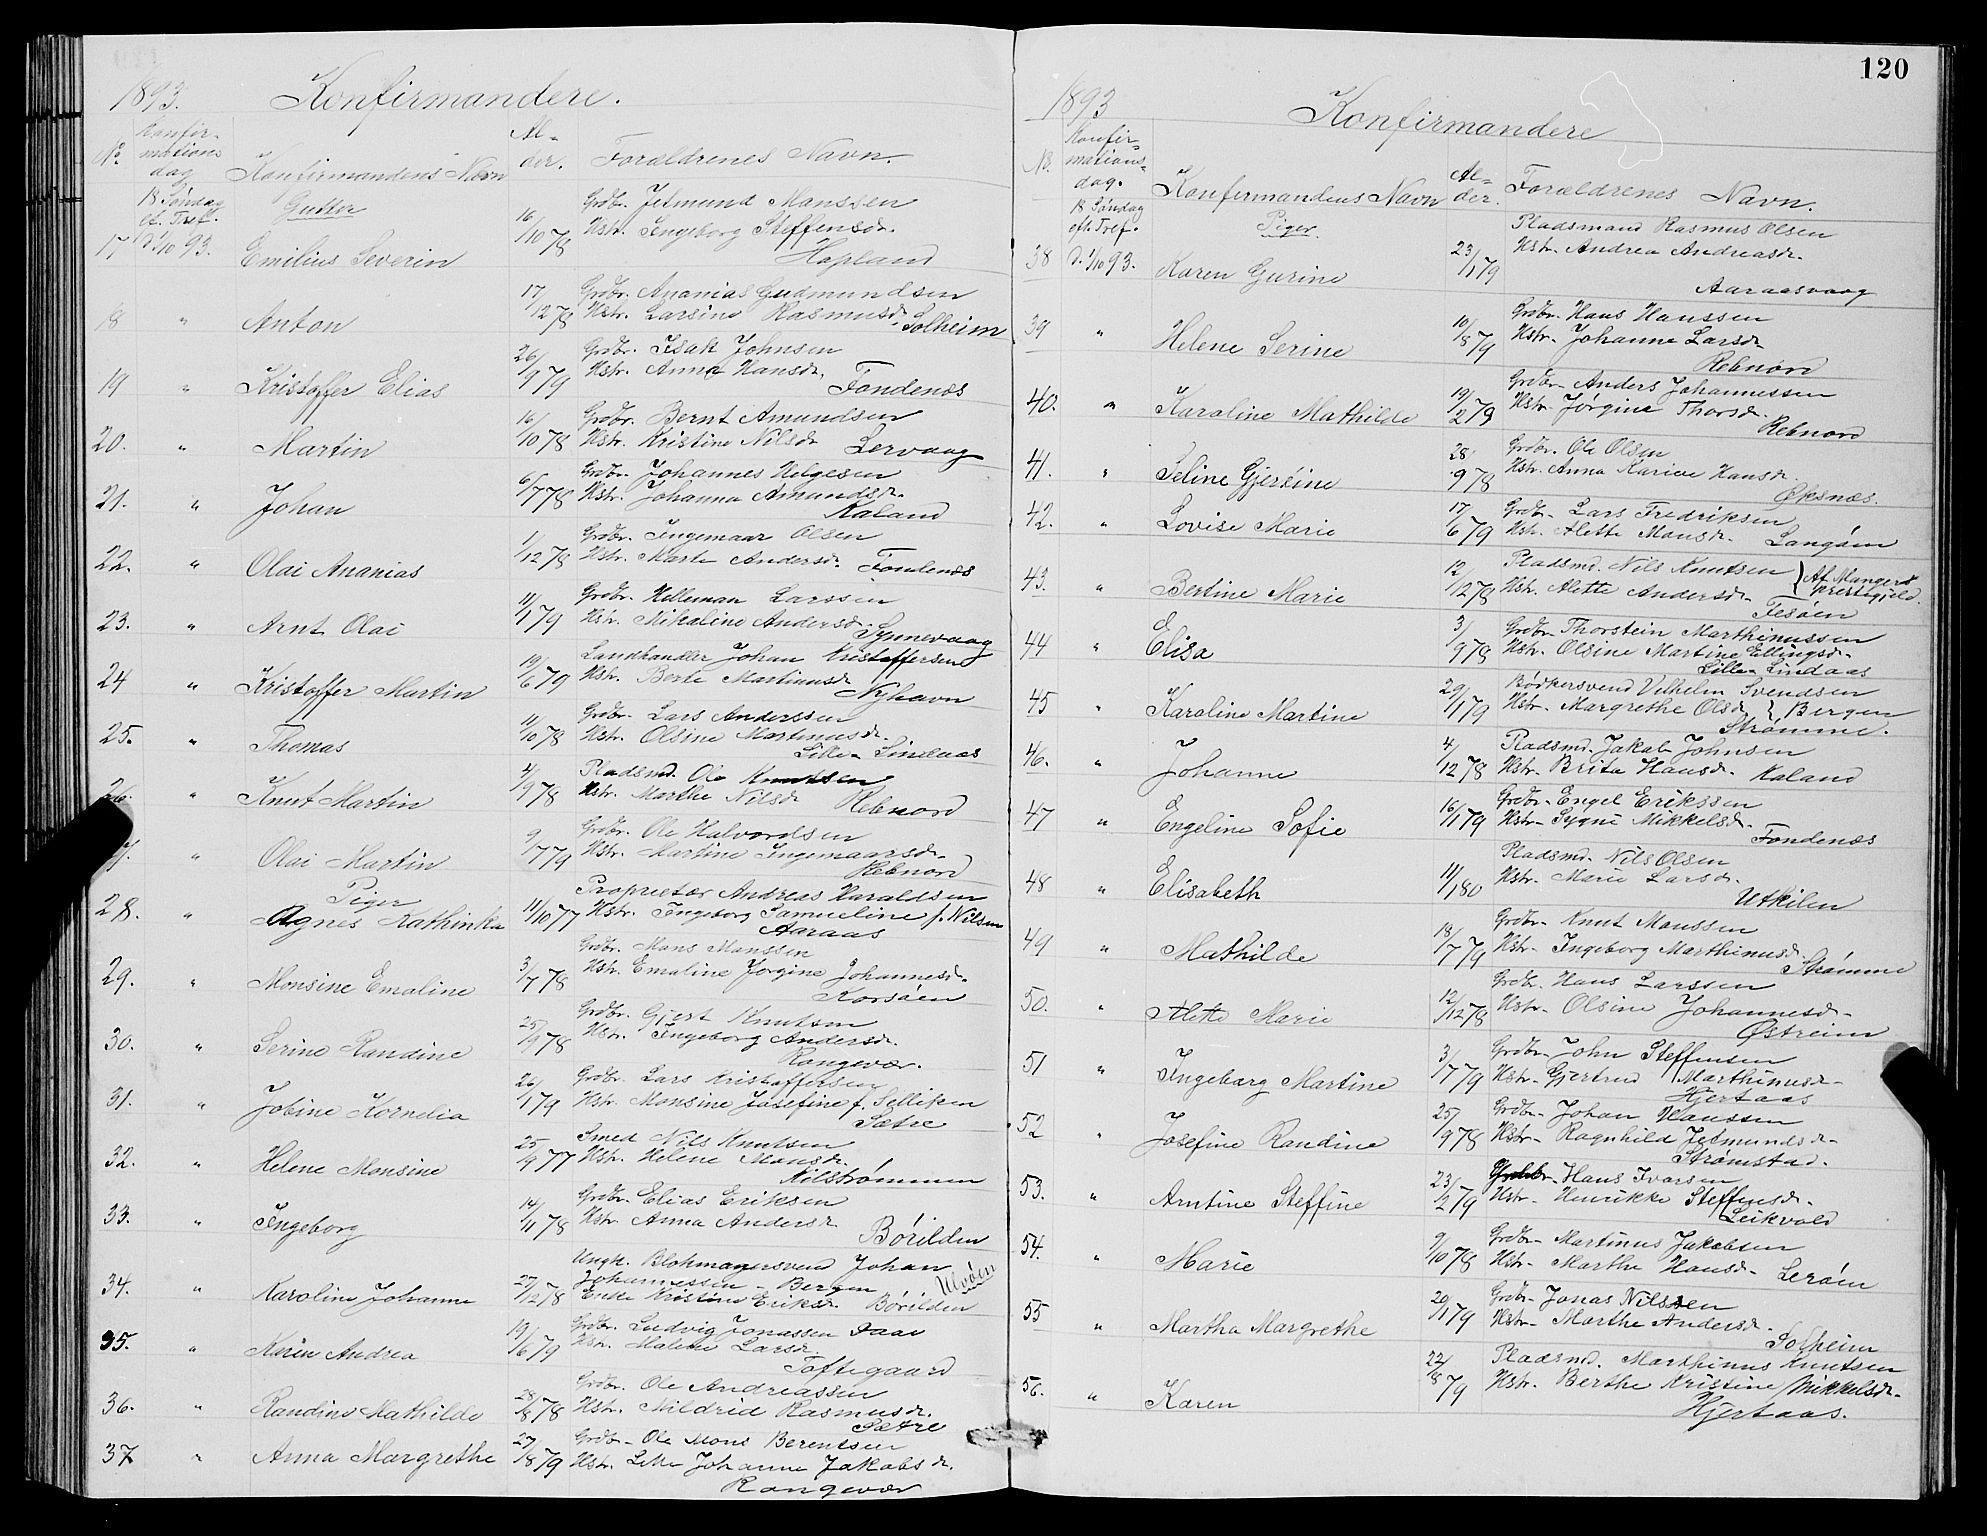 1893.
Konfirmandere.
No.
Konfir-
mations
dag
Konfirmandens Navn
Al-
der.
Forældrenes Navn.
18 Søndag
ef. Tref.
Gutter
17 d. 1/10 93. Emilius Severin 16/10 78 Grdbr. Jetmund Monssen
Hstr. Ingeborg Steffensdr.
Hopland
18 " Anton 17/12 78 Grdbr. Ananias Gudmundsen
Hstr. Larsine Rasmusdr. Solheim
19 " Kristoffer Elias 26/9 79 Grdbr. Isak Johnsen
Hstr. Anna Hansdr. Fondenæs
20. " Martin 16/10 78 Grdbr. Bernt Amundsen
Hstr. Kristine Nilsdr. Lervaag
21. " Johan 6/7 78 Grdbr. Johannes Helgesen
Hstr. Johanna Amundsdr.
Kaland
22. " Olai Ananias 1/12 78 Grdbr. Ingemaar Olsen
Hstr. Marte Andersdr. Fondenæs
23. " Arnt Olai 11/1 79 Grdbr. Helleman Larssen
Hstr. Mikaline Andersdr.
Synnevaag
24 " Kristoffer Martin 19/6 79 Landhandler Johan Kristoffersen
Hstr. Berte Martinusdr.
Nyhavn
25. " Thomas 11/10 78 Grdbr. Lars Anderssen
Hstr. Olsine Martinusdr.
Lille-Lindaas
26. " Knut Martin 4/9 78 Pladsmd. Ole Knutsen
Hstr. Marthe Nilsdr. Rebnord
" Olai Martin 9/7 79 Grdbr. Ole Halvordsen
Hstr. Martine Ingemaarsdr.
Rebnord
Piger
28. " Agnes Kathinka 11/10 77 Proprietær Andreas Haraldsen
Hstr. Ingeborg Samueline f. Nilsen
Aaraas
29. " Monsine Emaline 3/7 78 Grdbr. Mons Monssen
Hstr. Emaline Jørgine Johannesdr.
Korsøen
30. " Serine Randine 25/9 78 Grdbr. Gjert Knutsen
Hstr. Ingeborg Andersdr.
Rongevær.
31. " Jobine Kornelia 26/1 79 Grdbr. Lars Kristoffersen
Hstr. Monsine Josefine f. Selliken
Sætre
32. " Helene Monsine 25/9 77 Smed Nils Knutsen
Hstr. Helene Monsdr.
Nilstrømmen
33. " Ingeborg 14/11 78 Grdbr. Elias Eriksen
Hstr. Anna Andersdr.
Børilden
34. " Karoline Johanne 27/12 78 Ungk. Blokmagersvend Johan
Johannessen - Bergen Ulvøen
Enke Kristine Eriksdr. Børilden
35. " Karen Andrea 19/6 79 Grdbr. Ludvig Jonassen Daae
Hstr. Malene Larsdr.
Toftegaard
36. " Randine Mathilde 28/8 78 Grdbr. Ole Andreassen
Hstr. Mildrid Rasmusdr.
Sætre
37 " Anna Margrethe 27/8 79 Grdbr. Ole Mons Berentsen
Hstr. Johanne Jakobsdr.
Rongevær
120
1893
Konfirmandere
No.
Konfir-
mations-
dag.
Konfirmandens Navn
Al-
der.
Forældrenes Navn.
18 Søndag
eft. Tref.
Piger.
38 d. 1/10 93. Karen Gurine 23/1 79 Pladsmand Rasmus Olsen
Hstr. Andrea Andreasdr.
Aaraasvaag
39 " Helene Serine 10/8 79 Grdbr. Hans Hanssen
Hstr. Johanne Larsdr.
Rebnord
40. " Karoline Mathilde 19/2 79 Grdbr. Anders Johannessen
Hstr. Jørgine Thorsdr.
Rebnord
41. " Seline Gjersine 28/9 78 Grdbr. Ole Olsen
Hstr. Anna Karine Hansdr.
Øksnæs.
42. " Lovise Marie 17/6 79 Grdbr. Lars Fredriksen
Hstr. Alette Monsdr. Langøen
43. " Bertine Marie 12/12 78 Pladsmd. Nils Knutsen } Af Manger
Hstr. Alette Andersdr. præstegjeld.
Fesøen
44 " Elisa 3/9 78 Grdbr. Thorstein Marthinussen
Hstr. Olsine Martine Ellingsdr.
Lille-Lindaas
45 " Karoline Martine 29/1 79 Bødkersvend Vilhelm Svendsen
Hstr. Margrethe Olsdr. } Bergen
Strømme.
46. " Johanne 4/12 78 Pladsmd. Jakob Johnsen
Hstr. Brita Hansdr. Kaland
47 " Engeline Sofie 16/1 79 Grdbr. Engel Erikssen
Hstr. Sygni Mikkelsdr.
Fondenæs
48 " Elisabeth 11/1 80 Pladsmd. Nils Olsen
Hstr. Marie Larsdr.
Utkilen
49 " Mathilde 18/7 79 Grdbr. Knut Monssen
Hstr. Ingeborg Marthinusdr.
Strømme
50. " Alette Marie 12/12 78 Grdbr. Hans Larssen
Hstr. Olsine Johannesdr.
Østreim
51 " Ingeborg Martine 3/7 79 Grdbr. John Steffensen
Hstr. Gjertrud Marthinusdr.
Hjertaas
52 " Josefine Randine 25/9 78 Grdbr. Johan Hanssen
Hstr. Ragnhild Jetmundsdr.
Strømstad.
53. " Arntine Steffine 23/2 79 Grdbr. Hans Ivarsen
Hstr. Henrikke Steffensdr.
Leikvold
54. " Marie 9/10 78 Grdbr. Martinus Jakobsen
Hstr. Marthe Hansdr. Lerøen
55 " Martha Margrethe 20/1 79 Grdbr. Jonas Nilssen
Hstr. Marthe Andersdr.
Solheim
56. " Karen 22/8 79 Pladsmd. Marthinus Knutsen
Hstr. Berthe Kristine Mikkelsdr.
Hjertaas.